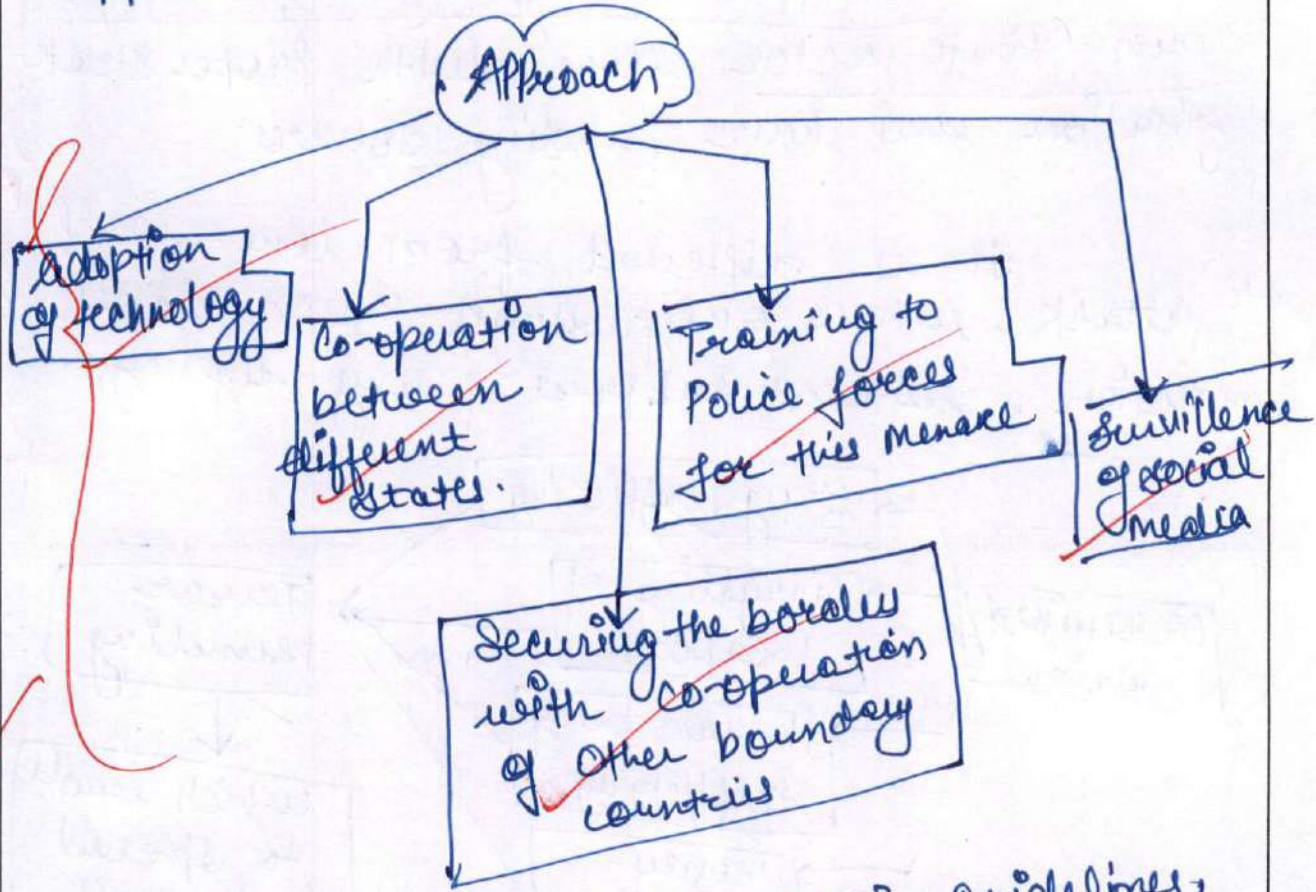 Approach
Adoption
of technology
Co-operation
between
different
states.
Training to
Police forces
for this menace
Survillence
of social
media
Securing the borders
with co-operation
of other boundary
countries
guidelines,